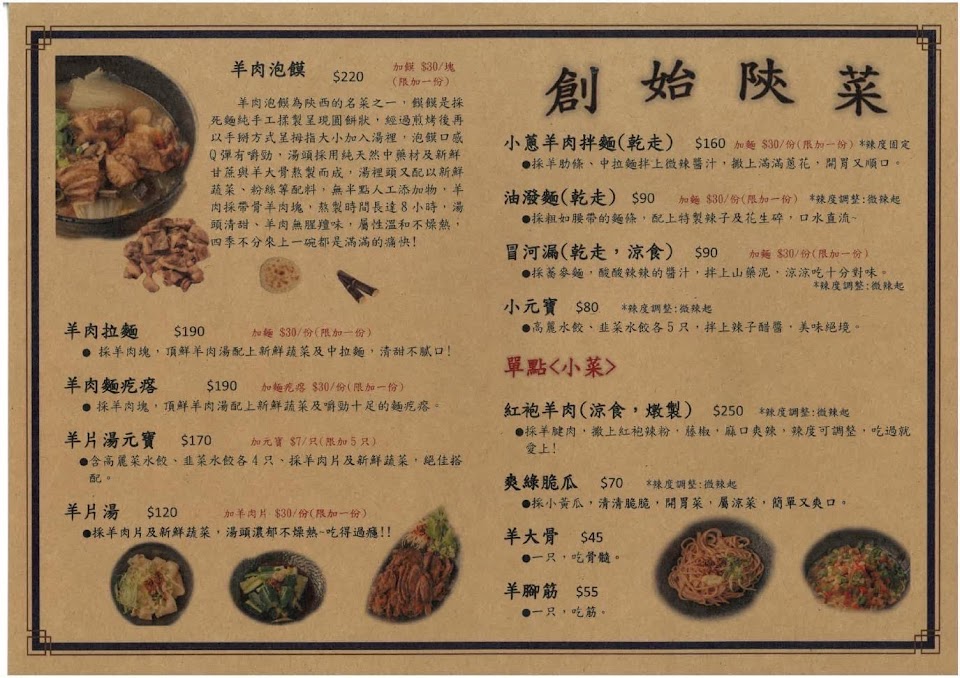 羊肉泡饃 $220 加饃 $30/塊
(限加一份)
羊肉泡饃為陝西的名菜之一，饃饃是採
死麵純手工揉製呈現圓餅狀，經過煎烤後再
以手掰方式呈拇指大小加入湯裡，泡饃口感
Q彈有嚼勁，湯頭採用純天然中藥材及新鮮
甘蔗與羊大骨熬製而成，湯裡頭又配以新鮮
蔬菜、粉絲等配料，無半點人工添加物，羊
肉採帶骨羊肉塊，熬製時間長達8小時，湯
頭清甜、羊肉無腥羶味，屬性溫和不燥熱，
四季不分來上一碗都是滿滿的痛快!
羊肉拉麵 $190 加麵 $30/份(限加一份)
● 採羊肉塊，頂鮮羊肉湯配上新鮮蔬菜及中拉麵，清甜不膩口!
羊肉麵疙瘩 $190 加麵疙瘩 $30/份(限加一份)
● 採羊肉塊，頂鮮羊肉湯配上新鮮蔬菜及嚼勁十足的麵疙瘩。
羊片湯元寶 $170 加元寶 $7/只(限加5只)
●含高麗菜水餃、韭菜水餃各4只、採羊肉片及新鮮蔬菜，絕佳搭
配。
羊片湯 $120 加羊肉片 $30/份(限加一份)
●採羊肉片及新鮮蔬菜，湯頭濃郁不燥熱~吃得過癮!!
創始陝菜
小蔥羊肉拌麵(乾走) $160 加麵 $30/份(限加一份) *辣度固定
●採羊肋條、中拉麵拌上微辣醬汁，撒上滿滿蔥花，開胃又順口。
油潑麵(乾走) $90 加麵 $30/份(限加一份) *辣度調整:微辣起
●採粗如腰帶的麵條，配上特製辣子及花生碎，口水直流~
冒河漏(乾走，涼食) $90 加麵 $30/份(限加一份)
●採蕎麥麵，酸酸辣辣的醬汁，拌上山藥泥，涼涼吃十分對味。
*辣度調整:微辣起
小元寶 $80 *辣度調整:微辣起
●高麗水餃、韭菜水餃各5只，拌上辣子醋醬，美味絕境。
單點<小菜>
紅袍羊肉(涼食，燉製) $250 *辣度調整:微辣起
●採羊腱肉，撒上紅袍辣粉，藤椒，麻口爽辣，辣度可調整，吃過就
愛上!
爽綠脆瓜 $70 *辣度調整:微辣起
●採小黃瓜，清清脆脆，開胃菜，屬涼菜，簡單又爽口。
羊大骨 $45
●一只，吃骨髓。
羊腳筋 $55
●一只，吃筋。